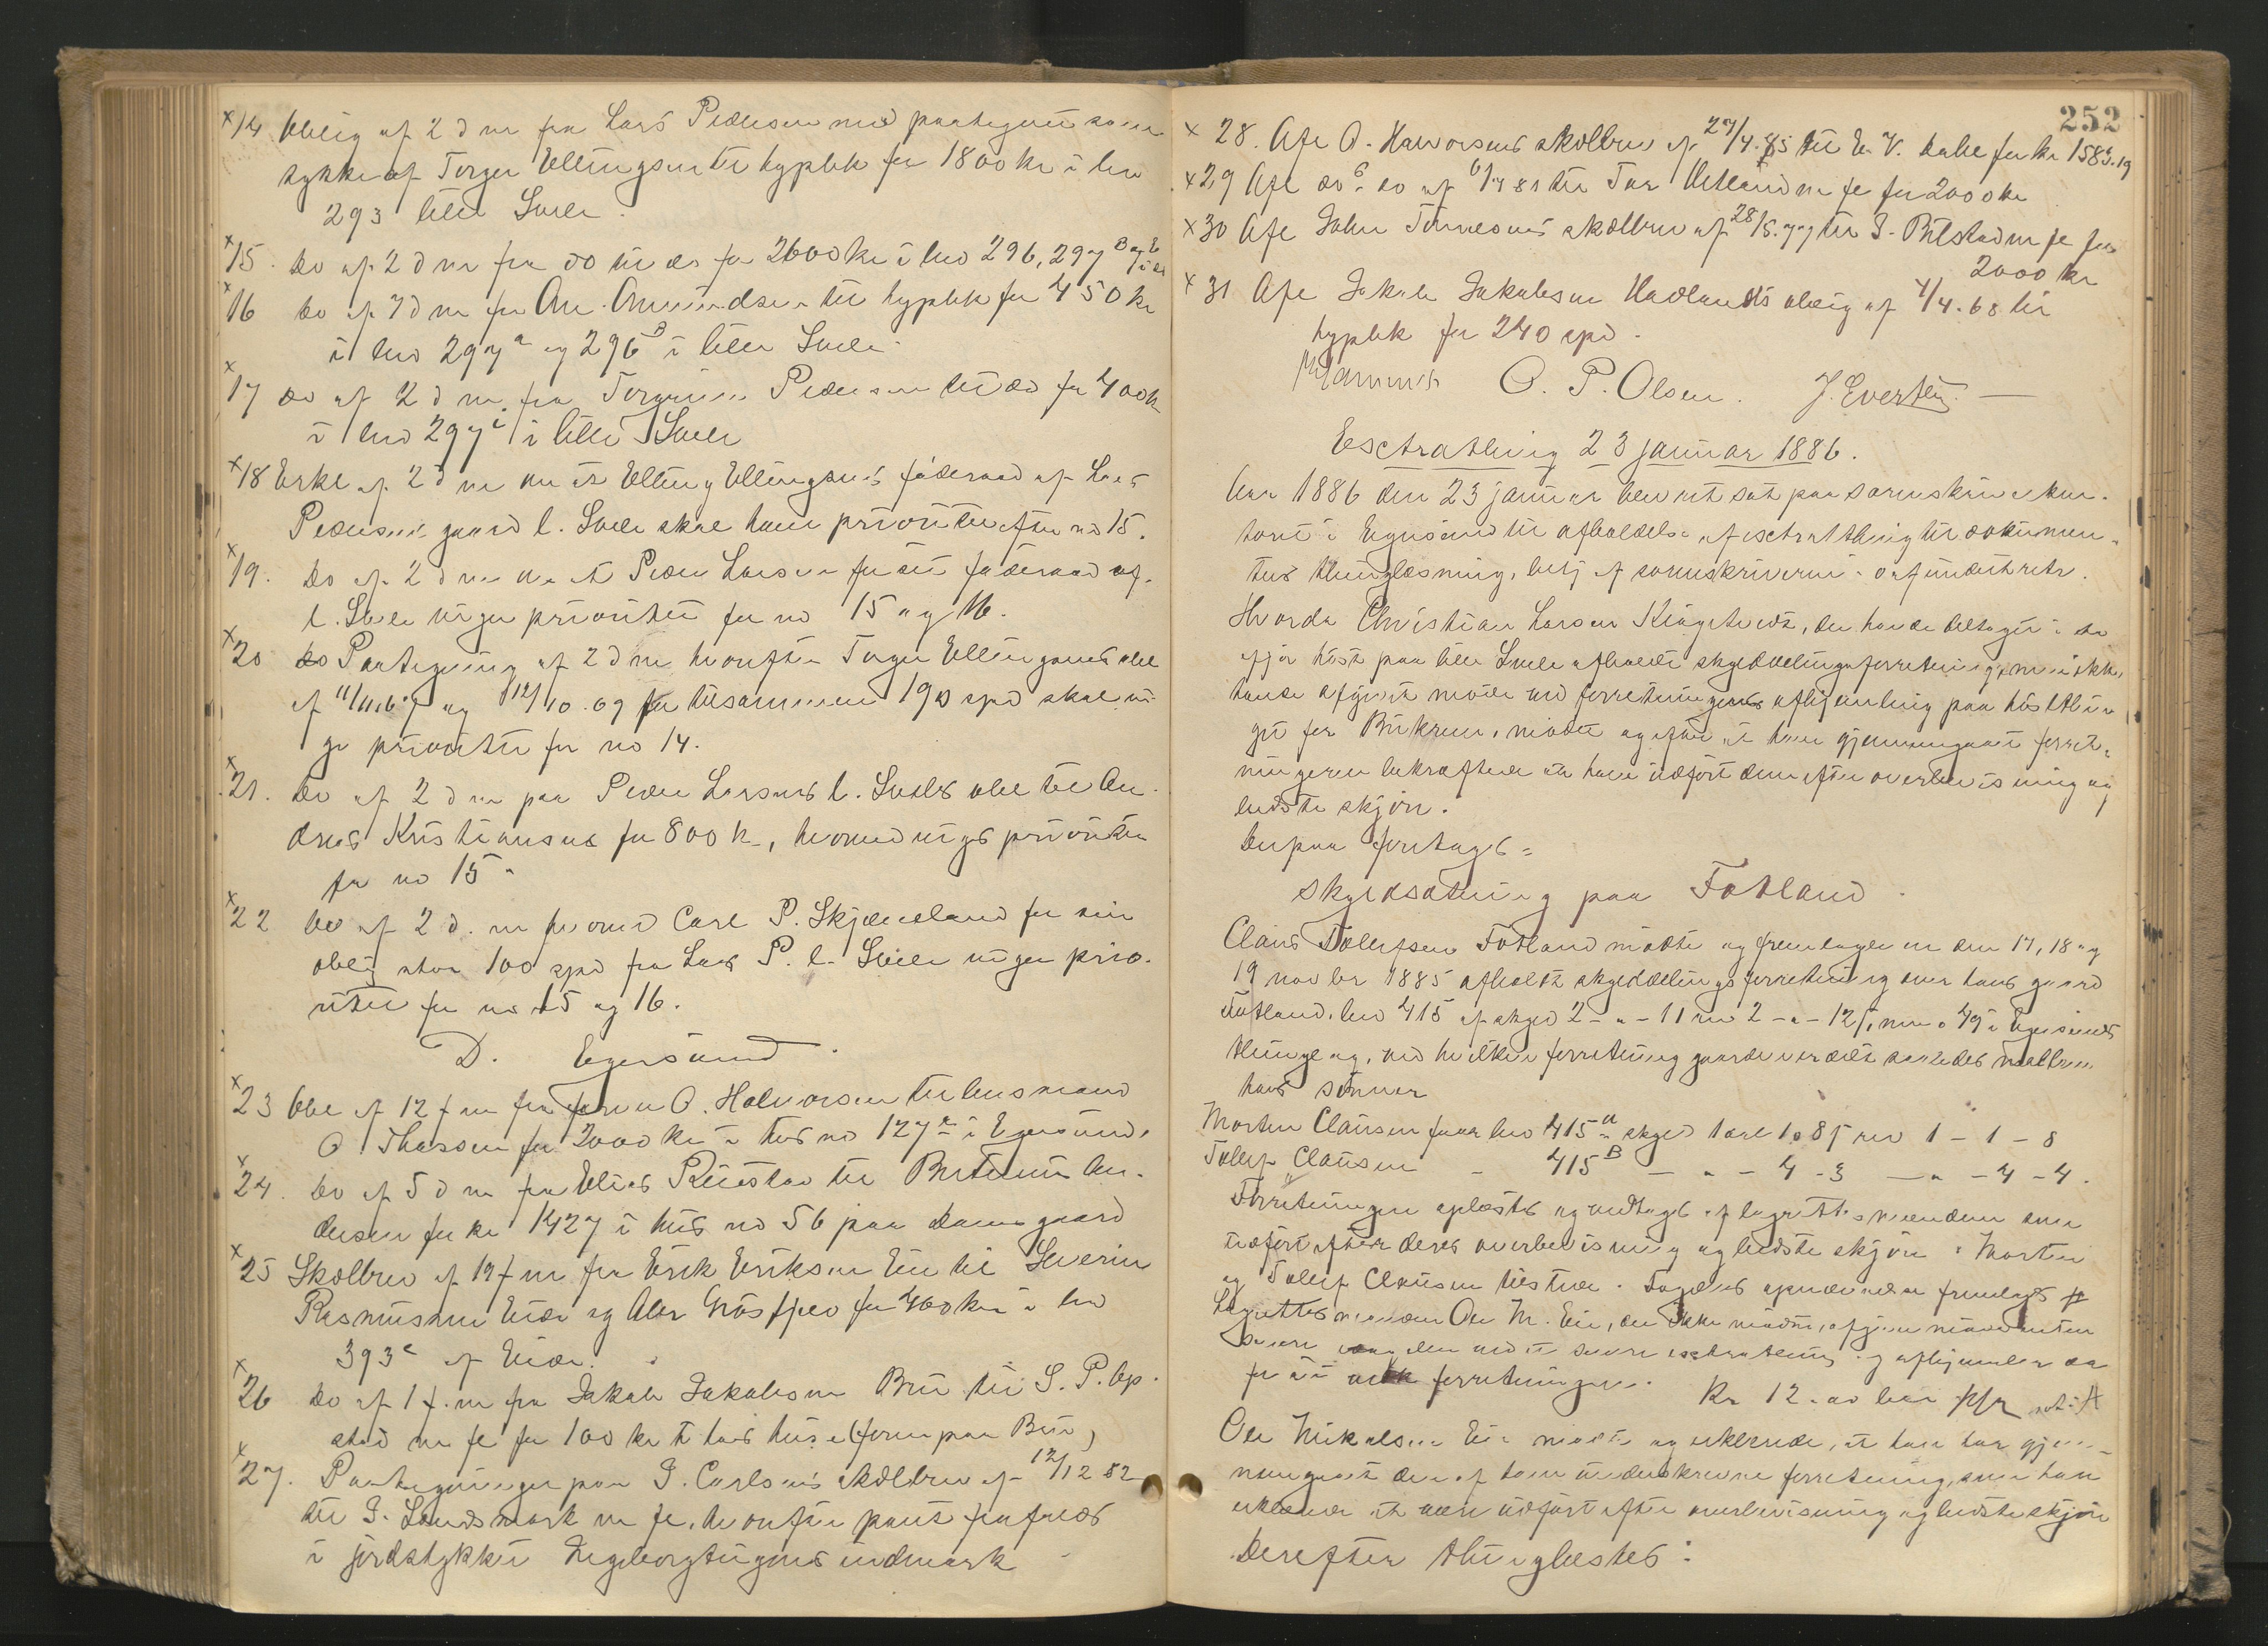 x14 Oblig af 2 d m fra Lars Pedersen med paategnet sam
tykke af Torger Ellingsen til hypbk for 1800 kr i lno
293 lille Svele.
x15. do af 2 d m fra do til do for 2600 kr i lno 296, 297 B og
x16 do af 7 d m fra Ane Amundsen til hypbk for 450 kr
i lno 297 a og 296 B i lille Svele
x17 do af 2 d m. fra Torgrim Pedersen til do for 400 kr
i lno 297 i lille Svele
x18 Erkl af 2 d m om at Elling Ellingsens føderaad af Lars
Pedersens gaard l. Svele skal have prioritet efter no 15.
x19. do af 2 d m om at Peder Larsen for sit føderaad af
l. Svele viger prioritet for no 15 og 16.
x20 do Paategning af 2 d m hvorefter Torger Ellingsens obl
af 11/11.67 og 12/10.69 for tilsammen 190 spd skal vi
ge prioritet for no 14.
x21. do af 2 d m paa Peder Larsens l. Sveles obl til An
dreas Kristiansen for 800 kr, hvorved viges prioritet
for no 15.
x22 do af 2 d. m hvorved Carl P. Skjæveland for sin
oblig stor 100 spd fra Lars P. l. Svele viger prio-
ritet for no 15 og 16.
D. Egersund.
x23 Obl af 12 f m fra O. Halvorsen til lensmand
O Thorsen for 2000 kr i hus no 127 i Egersund.
x24. do af 5 d m fra Elias Puntervold til An-
dersen for kr 1427 i hus no 56 paa Damsgaard
x25 Skjdbrev af 12 f m fra Erik Eriksen Eie til Severin
Rasmussen Eide og Abr Grøsfjeld for 460 kr i lno
393 c af Eide.
x26 do af 1 f. m fra Jakob Jakobsen Bru til S. P. Op
stad m fl for 100 kr i hans huse (forum paa Bru)
x27. Paategninger paa G. Carlsens skjdbrev af 12/12 82
til G. Landsmark m fl. hvorefter pant frafaldes
i jordstykket Ingeborgtugens udmark
252
x 28. Afl O. Halvorsens skdbrev af 27/4.85 til E. V. for kr 1583.19
x29 Afl do do af 6/7 81 til Tor Vetland m fl for 2000 kr
x30 Afl John Tønnesens skdbrev af 28/5.77 til S. Pilstad m fl for
2000 kr
x 31 Afl Jakob Jakobsen Havlands oblig af 4/4.68 til
hypbk for 240 spd.
O. P. Olsen. J. Evertsen.
Exstrathing 23 januar 1886.
Aar 1886 den 23 januar blev ret sat paa sorenskriverkon-
toret i Egersund til afholdelse af exstrathing til dokumen-
ters thinglæsning, betj af sorenskriveren & undertegnede.
Hvorda Christian Larsen Kingestveit, der havde deltaget i de
ifjor høst paa lille Svele afholdte skylddelingsforretning, men ikke
havde afgivet møde ved forretningens afhjemling paa høstthin
get for Birkrem, mødte og efter at have gjennemgaaet forret-
ningerne bekræftede at have udført dem efter overbevisning og
bedste skjøn.
Derpaa foretages:
Skyldsætning paa Fotland.
Claus Tollefsen Fotland mødte og fremlagde en den 17, 18 og
19 novbr 1885 afholdt skylddelingsforretning over hans gaard
Fotland, lno 415 af skyld 2 - " - 11 rev 2 - " - 12, mno 49 i Egersunds
thinglag, ved hvilken forretning gaarden er delt saaledes mellem
hans sønner
Morten Clausen faar lno 415 a skyld 1 ort 18 rev 1 - 1 - 8
Tollef Clausen - 415 B — " - 4 - 3 — " - 4 - 4.
Forretningen oplæstes og vedtages af lagrettesmændene som
udført efter deres overbevisning og bedste skjøn. Morten
og Tollef Clausen tilstede. fremlagdes
Lagrettesmanden Ole M. Eie, der ikke mødte, afgiver møde enten
senere idag eller ved et senere exstrathing og afhjemler da
for sit vedk forretningen. Kr 12.
Ole Mikalsen Eie mødte og erklærede, at han har gjen-
nemgaaet den af ham underskrevne forretning, som han
erklærer at være udført efter overbevisning og bedste skjøn
Derefter thinglæstes: